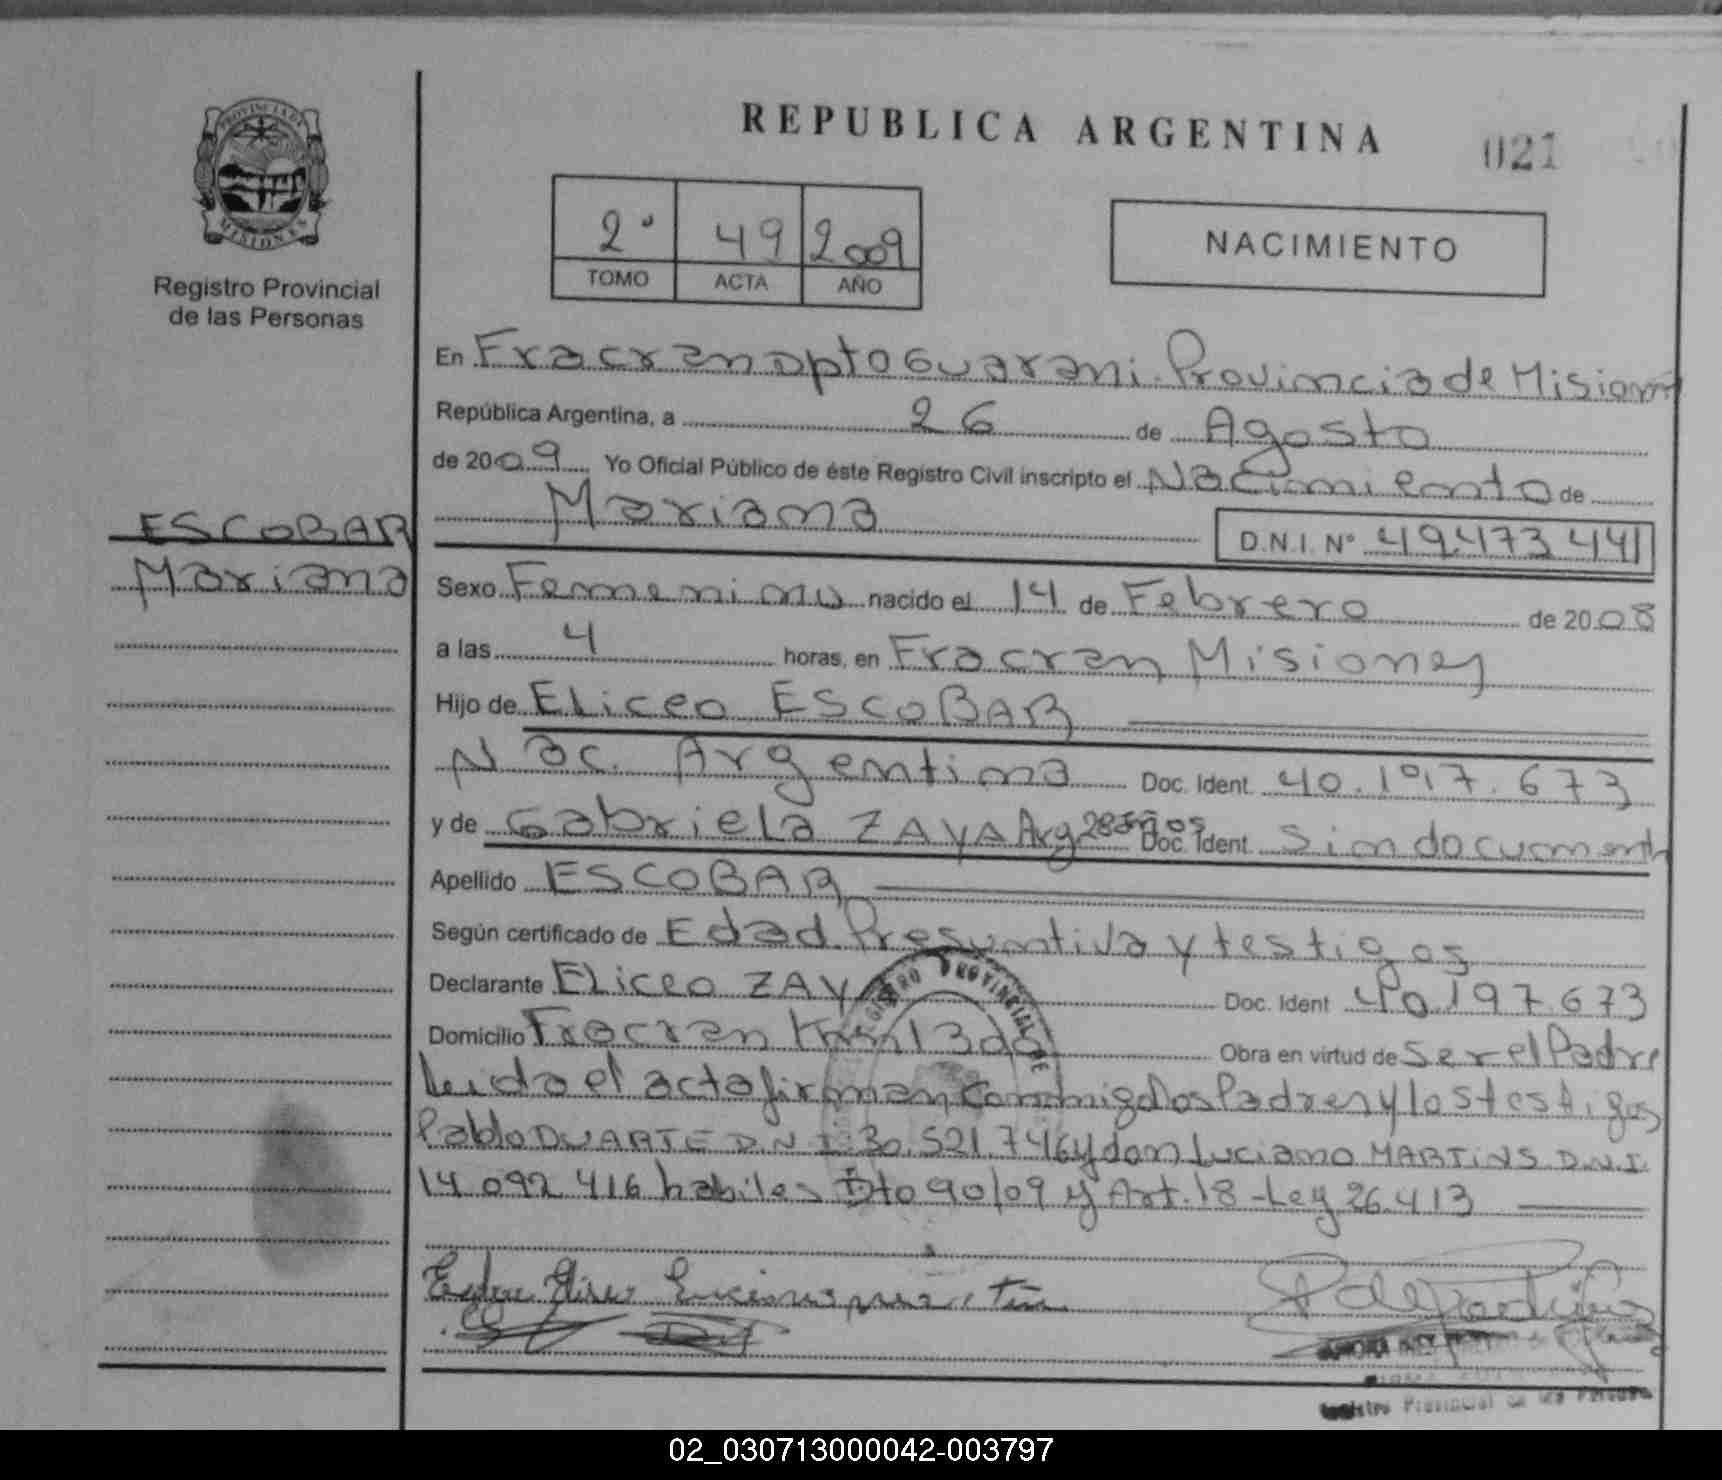 PROVINCIA DE
MISIONES
Registro Provincial
de las Personas
REPUBLICA ARGENTINA
021
2º 49 2009
TOMO ACTA AÑO
NACIMIENTO
En Fracran Dpto Guarani. Provincia de Misiones
República Argentina, a 26 de Agosto
de 2009 Yo Oficial Público de éste Registro Civil inscripto el Nacimiento de
Mariana
D.N.I. Nº 49.473 441
ESCOBAR
Mariana
Sexo Femenino nacido el 14 de Febrero de 2008
a las 4 horas, en Fracran Misiones
Hijo de Eliceo ESCOBAR
Nac. Argentina Doc. Ident. 40.197.673
y de Gabriela ZAYA Arg 28 años Doc. Ident. Sin documento
Apellido ESCOBAR
Según certificado de Edad Presuntiva y testigos
Declarante Eliceo ZAY Doc. Ident 40.197.673
Domicilio Fracran Km 13 Obra en virtud de Ser el Padre
Leida el acta firman conmigo los Padres y los testigos
Pablo DUARTE D.N.I. 30.521.746 y don Luciano MARTINS D.N.I.
14.092 416 habiles Dto 90/09 y Art. 18 - Ley 26.413
REGISTRO PROVINCIAL DE
Registro Provincial de las Personas
02_030713000042-003797